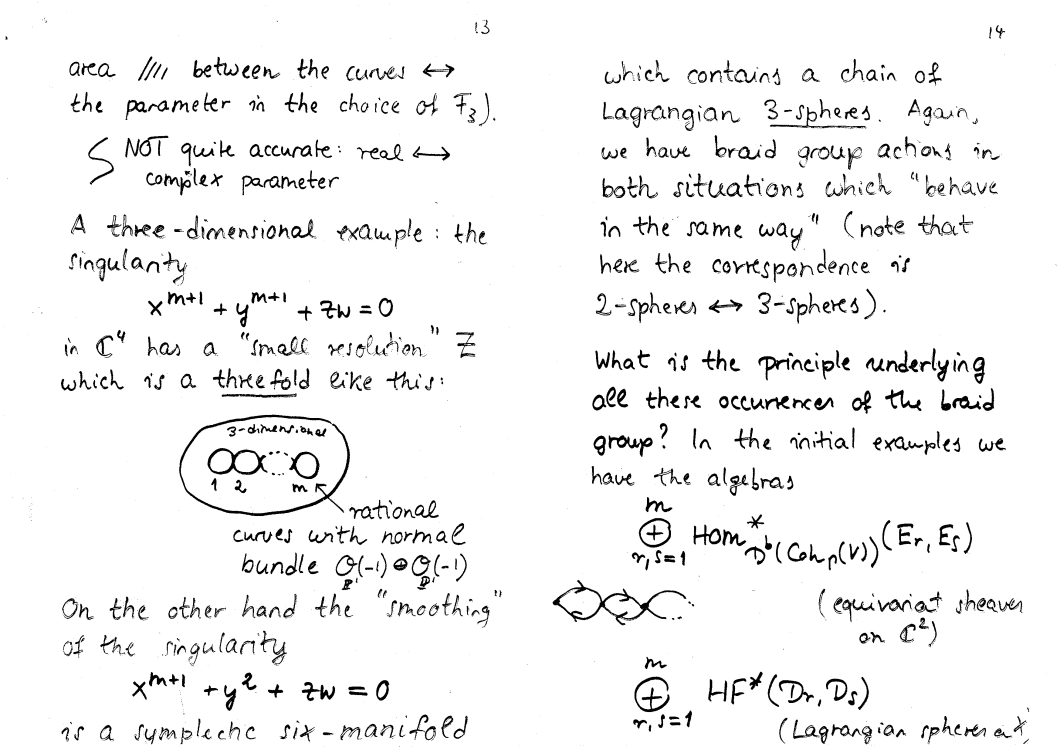 13
area //// between the curves ↔
the parameter in the choice of F₃).
NOT quite accurate: real ↔
complex parameter
A three-dimensional example: the
singularity
x^{m+1} + y^{m+1} + zw = 0
in ℂ⁴ has a "small resolution" Z
which is a threefold like this:
3-dimensional
1 2 m
rational
curves with normal
bundle O_{P¹}(-1) ⊕ O_{P¹}(-1)
On the other hand the "smoothing"
of the singularity
x^{m+1} + y² + zw = 0
is a symplectic six-manifold
14
which contains a chain of
Lagrangian 3-spheres. Again,
we have braid group actions in
both situations which "behave
in the same way" (note that
here the correspondence is
2-spheres ↔ 3-spheres).
What is the principle underlying
all these occurrences of the braid
group? In the initial examples we
have the algebras
⊕_{r,s=1}^{m} Hom*_{D^b(Coh_p(V))}(E_r, E_s)
(equivariat sheaves
on ℂ²)
⊕_{r,s=1}^{m} HF*(D_r, D_s)
(Lagrangian spheres